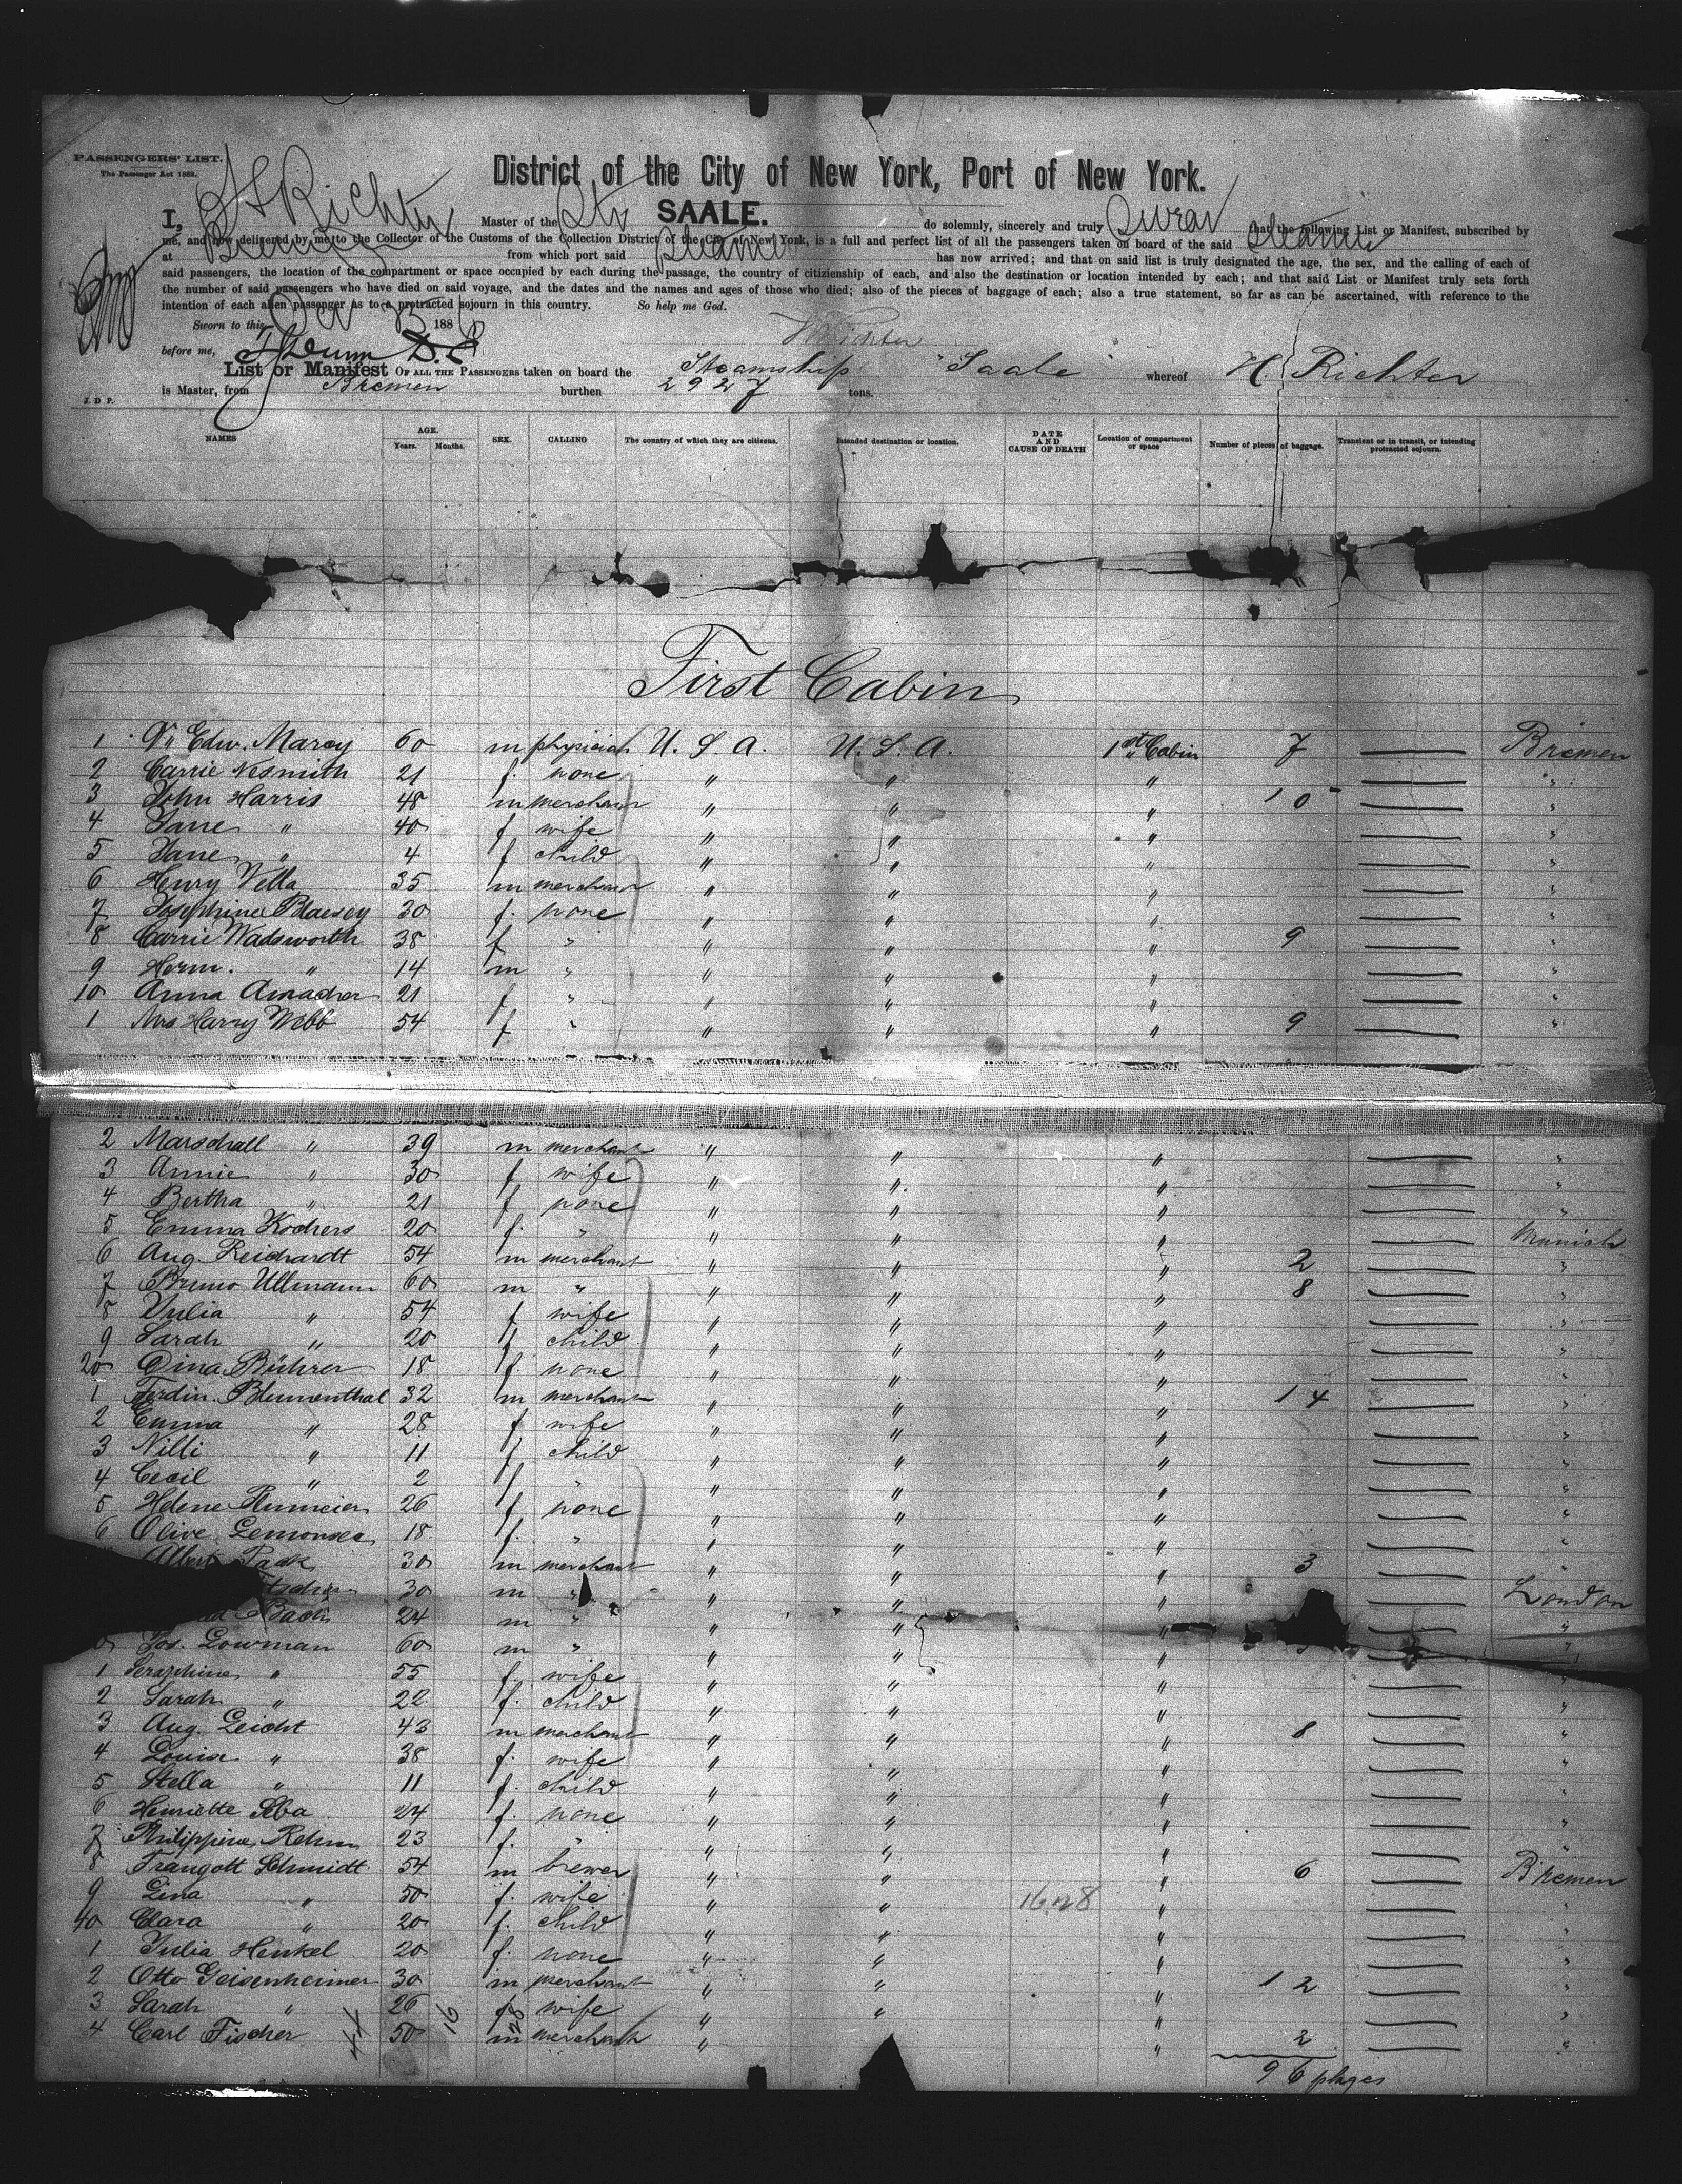 PASSENGERS' LIST.
The Passenger Act 1882.
District of the City of New York, Port of New York.
I, H Richter Master of the Str SAALE. do solemnly, sincerely and truly Swear that the following List or Manifest, subscribed by
me, and now delivered by me to the Collector of the Customs of the Collection District of the City of New York, is a full and perfect list of all the passengers taken on board of the said Steamer
at Bremen from which port said Steamer has now arrived; and that on said list is truly designated the age, the sex, and the calling of each of
said passengers, the location of the compartment or space occupied by each during the passage, the country of citizienship of each, and also the destination or location intended by each; and that said List or Manifest truly sets forth
the number of said passengers who have died on said voyage, and the dates and the names and ages of those who died; also of the pieces of baggage of each; also a true statement, so far as can be ascertained, with reference to the
intention of each alien passenger as to a protracted sojourn in this country. So help me God.
Sworn to this 188
H Richter
before me,
List or Manifest OF ALL THE PASSENGERS taken on board the Steamship "Saale" whereof H. Richter
is Master, from Bremen burthen 2927 tons.
J. D P.
NAMES AGE. Years. Months. SEX. CALLING The country of which they are citizens. Intended destination or location. DATE AND CAUSE OF DEATH Location of compartment or space Number of pieces of baggage. Transient or in transit, or intending protracted sojourn.
First Cabin
1 Dr Edw. Marcy 60 m physician U. S. A. U. S. A. 1st Cabin 7 — Bremen
2 Carrie Nesmith 21 f. none " " " — "
3 John Harris 48 m merchant " " " 10 — "
4 Jane " 40 f wife " " " — "
5 Jane " 4 f child " " " — "
6 Henry Vella 35 m merchant " " " — "
7 Josephine Blaesey 30 f. none " " " — "
8 Carrie Wadsworth 38 f " " " " 9 — "
9 Herm. " 14 m " " " " — "
10 Anna Amacher 21 f " " " " — "
1 Mrs Harry Webb 54 f " " " " 9 — "
2 Marschall " 39 m merchant " " " — "
3 Annie " 30 f wife " " " — "
4 Bertha " 21 f none " " " — "
5 Emma Kochers 20 f. " " " " — Munich
6 Aug. Reichardt 54 m merchant " " " 2 — "
7 Bruno Ullmann 60 m " " " " 8 — "
8 Julia " 54 f wife " " " — "
9 Sarah " 20 f child " " " — "
20 Dina Bührer 18 f. none " " " — "
1 Ferdin. Blumenthal 32 m merchant " " " 14 — "
2 Emma " 28 f wife " " " — "
3 Nilli " 11 f child " " " — "
4 Cecil " 2 f " " " " — "
5 Helene 26 f none " " " — "
6 Olive 18 f. " " " " — "
Albert Pack 30 m merchant " " " 3 — "
30 m " " " " — London
Bach 24 m " " " " — "
0 Jos. Lowman 60 m " " " " — "
1 Seraphine " 55 f. wife " " " — "
2 Sarah " 22 f. child " " " — "
3 Aug. Leicht 43 m merchant " " " 8 — "
4 Louise " 38 f. wife " " " — "
5 Stella " 11 f. child " " " — "
6 Henriette Seba 24 f. none " " " — "
7 Philippine Rehm 23 f. " " " " — "
8 Traugott Schmidt 54 m brewer " " " 6 — Bremen
9 Lina " 50 f. wife " " " — "
40 Clara " 20 f. child " " " — "
1 Julia Henkel 20 f. none " " " — "
2 Otto Geisenheimer 30 m merchant " " " 12 — "
3 Sarah " 26 f wife " " " — "
4 Carl Fischer 50 m merchant " " 2 — "
44 16 28
96 pkges